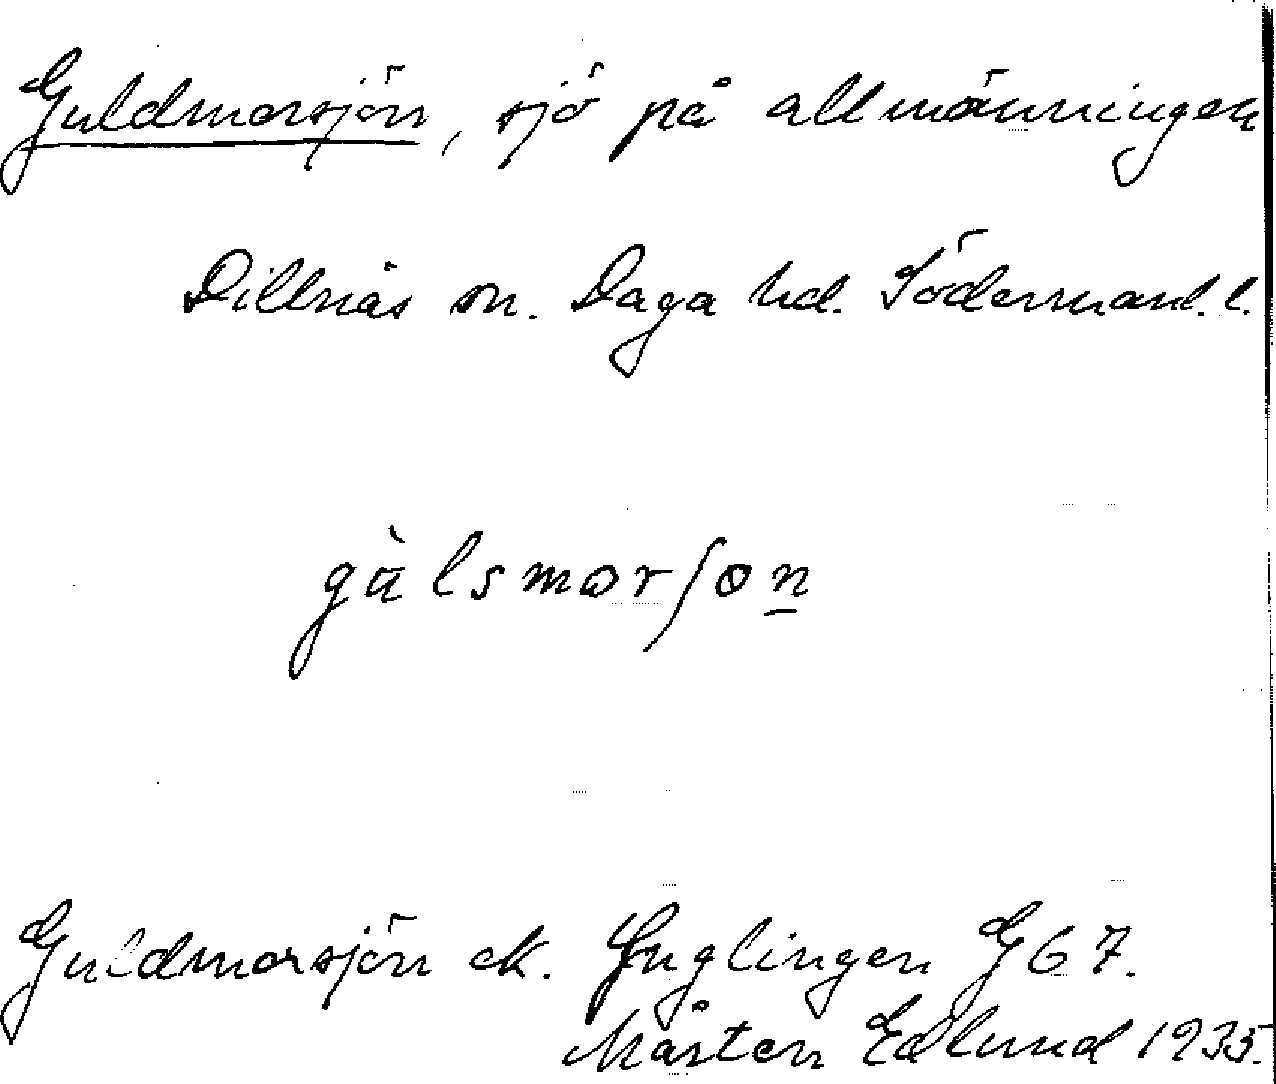 Guldmorsjön, sjö på allmänningen
Dillnäs sn. Daga hd. Södermanl. l.
gù̱lsmorʃon̲
Guldmorsjön ek. Ynglingen G 67.
Mårten Edlund 1935.